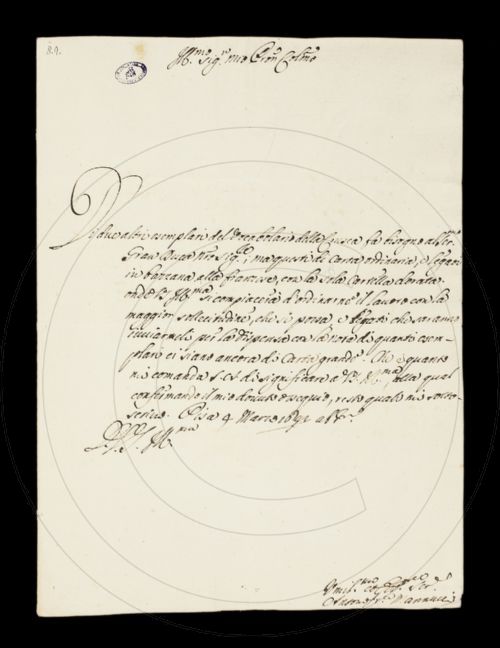 Ill.mo Sig.r mio P̃ron Col.mo
Di due altri esemplari del Vocabolario della Crusca fà bisogno al Ser.mo
Gran Duca n̄ro Sig.re, ma questi di Carta ordinaria, e legati
in bazzana alla franzese, con la sola Cartella dorata
onde V.S. Ill.ma si compiacerà d'ordinarne il lavoro con la
maggior sollecitudine, che si possa e legati che saranno
inviarmeli per la dispensa con la nota di quanti esem-
plari ci siano ancora di Carta grande. Che è quanto
mi comanda S.A. di significare a V.S. Ill.ma, alla qual
confermando il mio dovuto ossequio, resto quale mi sotto-
scrivo. Pisa 4 Marzo 1691 ab Inc.e
D. V.S. Ill.ma
Umil.mo Ser.e
Vannucci